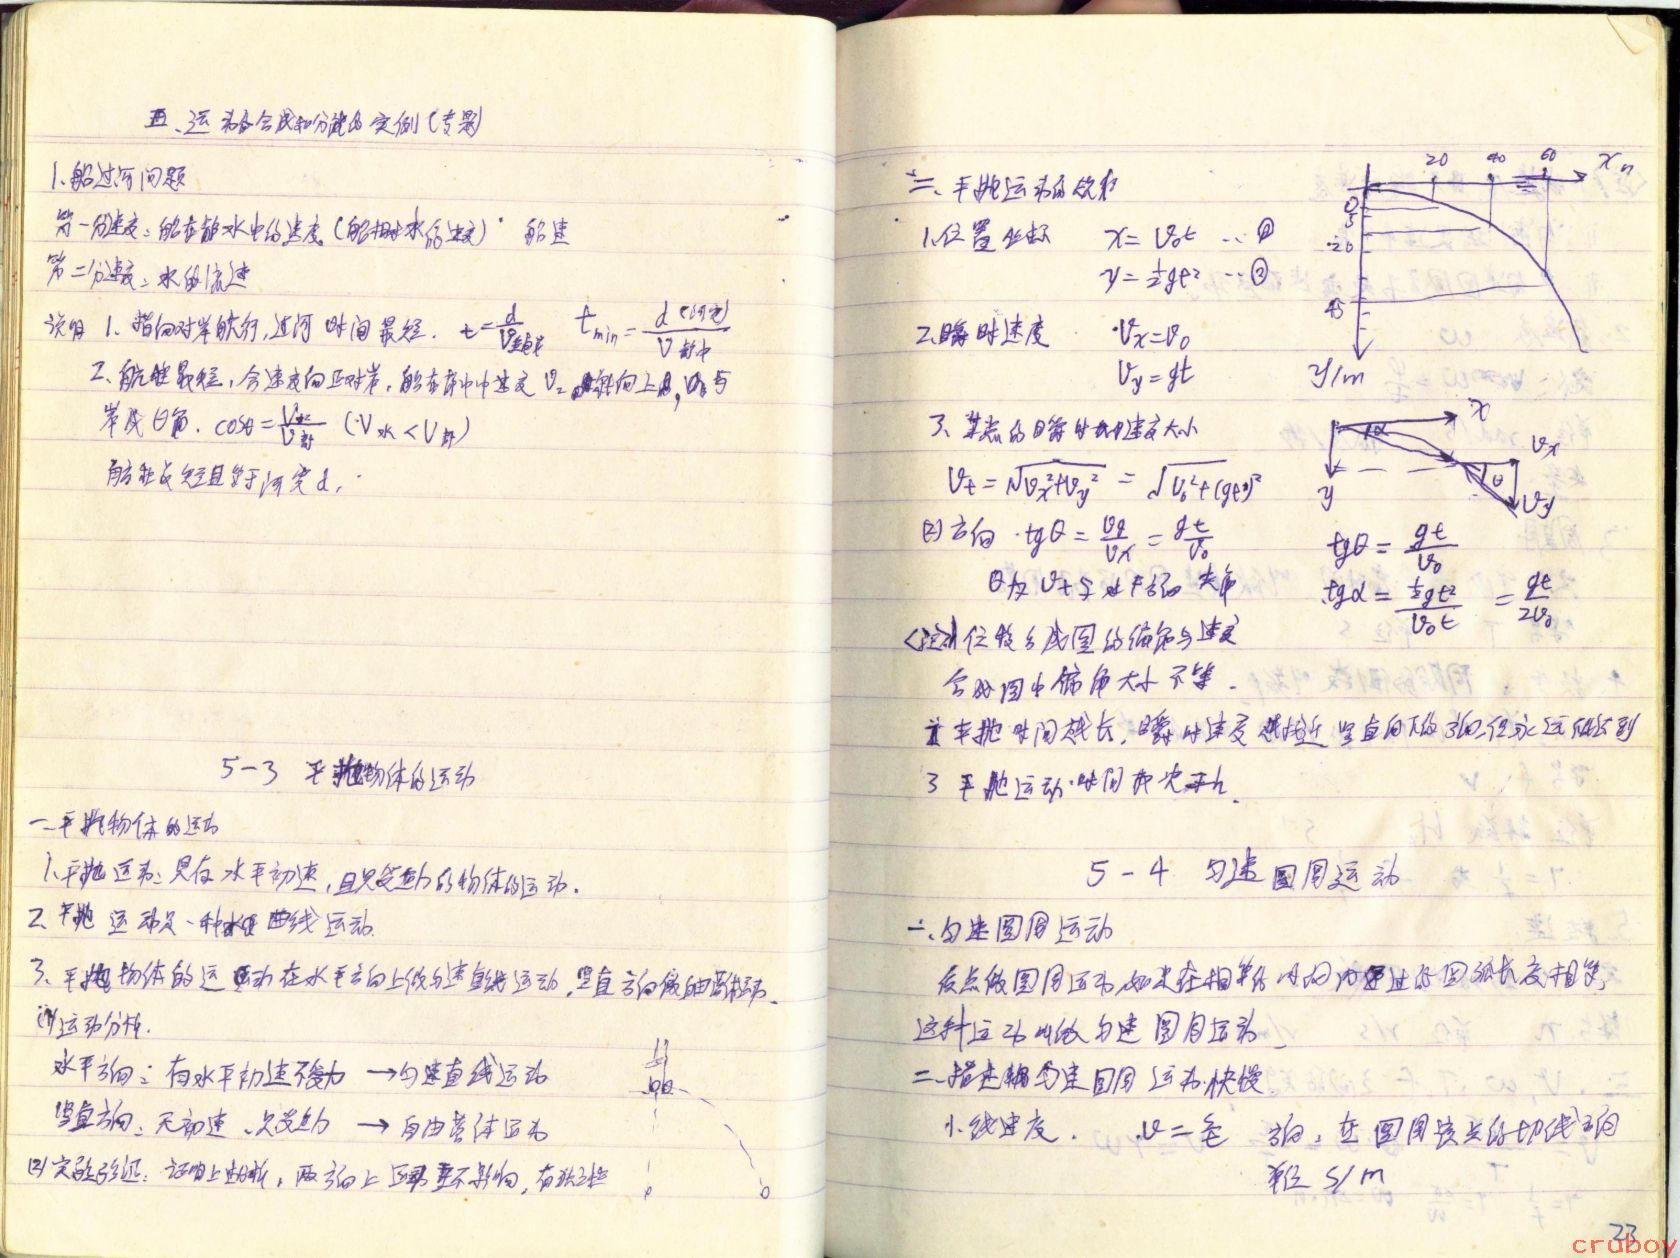 五、运动合成和分解的实例(专题)
1、船过河问题
第一分速度：船在静水中的速度(船相对水的速度) 船速
第二分速度：水的流速
说明 1. 指向对岸航行，过河时间最短. t=d/V tmin=d(河宽)/V
2. 航程最短，合速度向正对岸，船在 中速度 V
岸成θ角. cosθ=V水/V (V水<V)
航程 短且等于河宽d.
5-3 平抛物体的运动
一、平抛物体的运动
1、平抛运动：只有水平初速，且只受重力的物体的运动.
2、平抛运动是一种 曲线运动.
3、平抛物体的运动在水平方向上做匀速直线运动，竖直方向做自由落体运动.
(1)运动分析.
水平方向：有水平初速不受力 →匀速直线运动
竖直方向：无初速、只受重力 → 自由落体运动
(2)实验验证：证明上 ，两方向上 互不影响，有独立性
二、平抛运动的规律
1、位置坐标 x=v₀t …①
y=½gt² …②
2、瞬时速度 Vx=V₀
Vy=gt
3、某点的瞬时 速度大小
Vt=√Vx²+Vy² = √V₀²+(gt)²
(2)方向 tgθ=Vy/Vx=gt/V₀
θ为Vt与水平方向夹角
位移合成图的偏角与速度
合成图中偏角大小不等.
平抛时间越长，瞬时速度越接近竖直向下的方向，但永远 达到
3 平抛运动时间 决于h.
20 40 60 x m
0
5
20
45
y/m
x
α
Vx
θ
y
Vy
tgθ=gt/V₀
tgα=½gt²/V₀t =gt/2V₀
5-4 匀速圆周运动
一、匀速圆周运动
质点做圆周运动，如果在相等的时间内通过的圆弧长度相等，
这种运动叫做匀速圆周运动.
二、描述 匀速圆周运动快慢.
1、线速度. v=s/t 方向：在圆周该点的切线方向
单位 s/m
23
cruboy